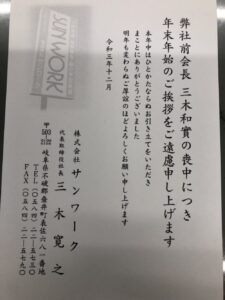 弊社前会長 三木和實の喪中につき
年末年始のご挨拶をご遠慮申し上げます
本年中はひとかたならぬお引き立てをいただき
まことにありがとうございました
明年も変わらぬご厚誼のほどよろしくお願い申し上げます
令和三年十二月
SUNWORK
株式会社 サンワーク
代表取締役社長 三木寛之
〒503-2122 岐阜県不破郡垂井町表佐六八一番地
TEL(〇五八四)二二-五七三〇
FAX(〇五八四)二二-五七九〇